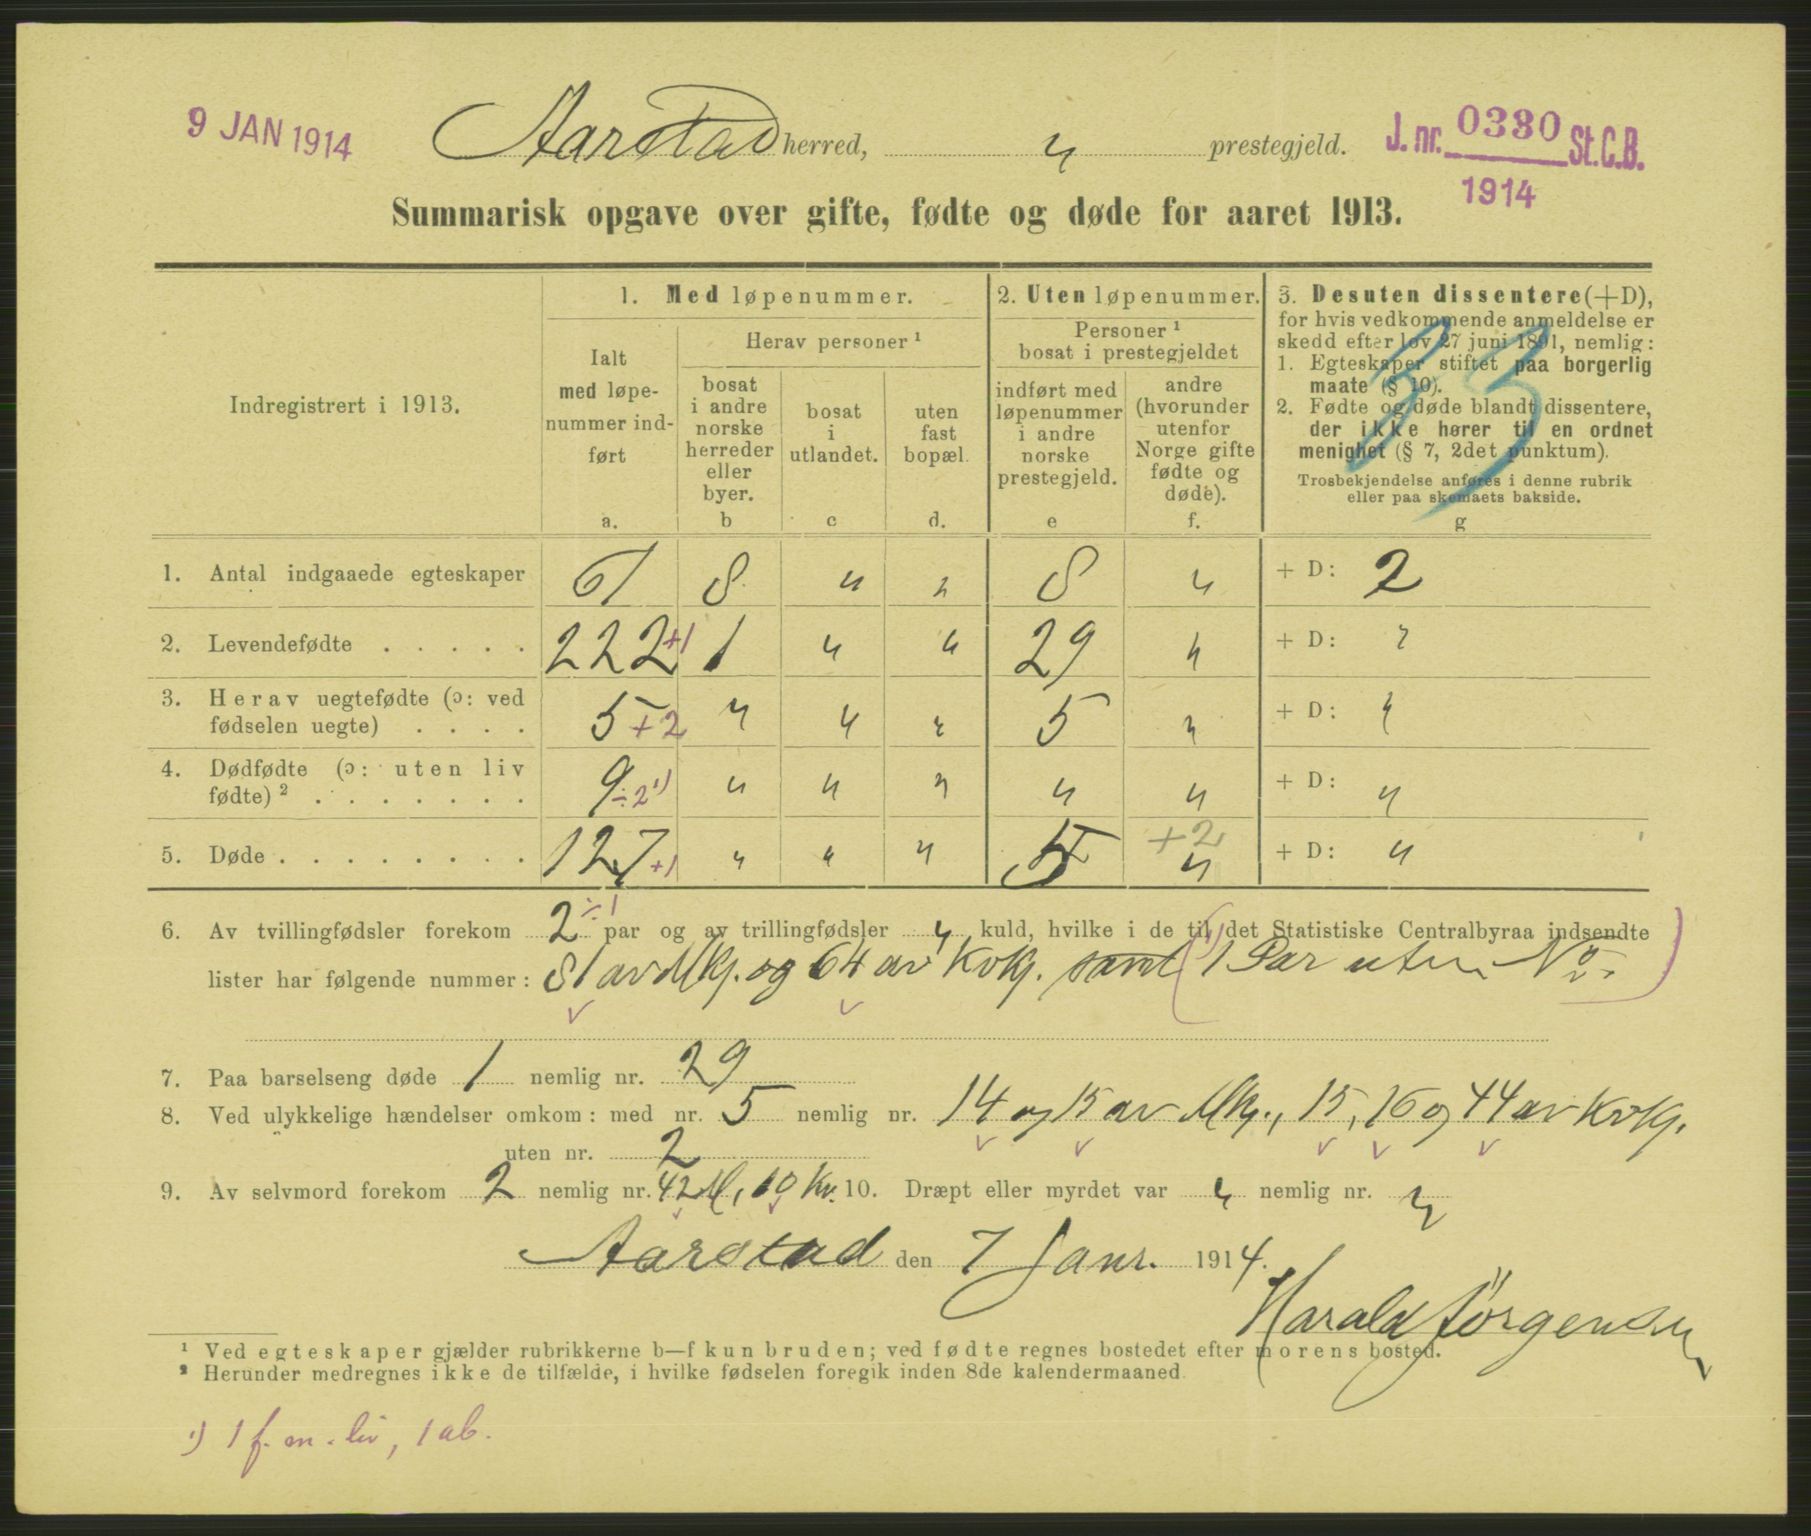 9 JAN 1914
Aarstad herred, " prestegjeld.
J. nr. 0330 St. C. B.
1914
Summarisk opgave over gifte, fødte og døde for aaret 1913.
Indregistrert i 1913.
1. Med løpenummer.
Ialt
med løpe-
nummer ind-
ført
a.
Herav personer ¹
bosat
i andre
norske
herreder
eller
byer.
b
bosat
i
utlandet.
c
uten
fast
bopæl.
d.
2. Uten løpenummer.
Personer ¹
bosat i prestegjeldet
indført med
løpenummer
i andre
norske
prestegjeld.
e
andre
(hvorunder
utenfor
Norge gifte
fødte og
døde).
f.
3. Desuten dissentere (+D),
for hvis vedkommende anmeldelse er
skedd efter lov 27 juni 1891, nemlig:
1. Egteskaper stiftet paa borgerlig
maate (§ 10).
2. Fødte og døde blandt dissentere,
der ikke hører til en ordnet
menighet (§ 7, 2det punktum).
Trosbekjendelse anføres i denne rubrik
eller paa skemaets bakside.
g
33
1. Antal indgaaede egteskaper 61 8 " " 8 " + D: 2
2. Levendefødte . . . . . 222 +1 1 " " 29 " + D: "
3. Herav uegtefødte (ɔ: ved
fødselen uegte) . . . . 5 +2 " " " 5 " + D: "
4. Dødfødte (ɔ: uten liv
fødte) ² . . . . . . . 9 ÷2 ¹) " " " " " + D: "
5. Døde . . . . . . . . 127 +1 " " " 5 +2 " + D: "
6. Av tvillingfødsler forekom 2 ÷1 par og av trillingfødsler " kuld, hvilke i de til det Statistiske Centralbyraa indsendte
lister har følgende nummer: 81 av Mkj. og 64 av Kvkj. samt (1 Par uten No.)
7. Paa barselseng døde 1 nemlig nr. 29
8. Ved ulykkelige hændelser omkom: med nr. 5 nemlig nr. 14 og 15 av Mkj., 15, 16 og 44 av Kvkj.
uten nr. 2
9. Av selvmord forekom 2 nemlig nr. 42 M, 10 Kv. 10. Dræpt eller myrdet var " nemlig nr. "
Aarstad den 7 Janr. 1914.
Harald Jörgensen
¹ Ved egteskaper gjælder rubrikkerne b—f kun bruden; ved fødte regnes bostedet efter morens bosted.
² Herunder medregnes ikke de tilfælde, i hvilke fødselen foregik inden 8de kalendermaaned
¹) 1 f. m. liv, 1 ab.